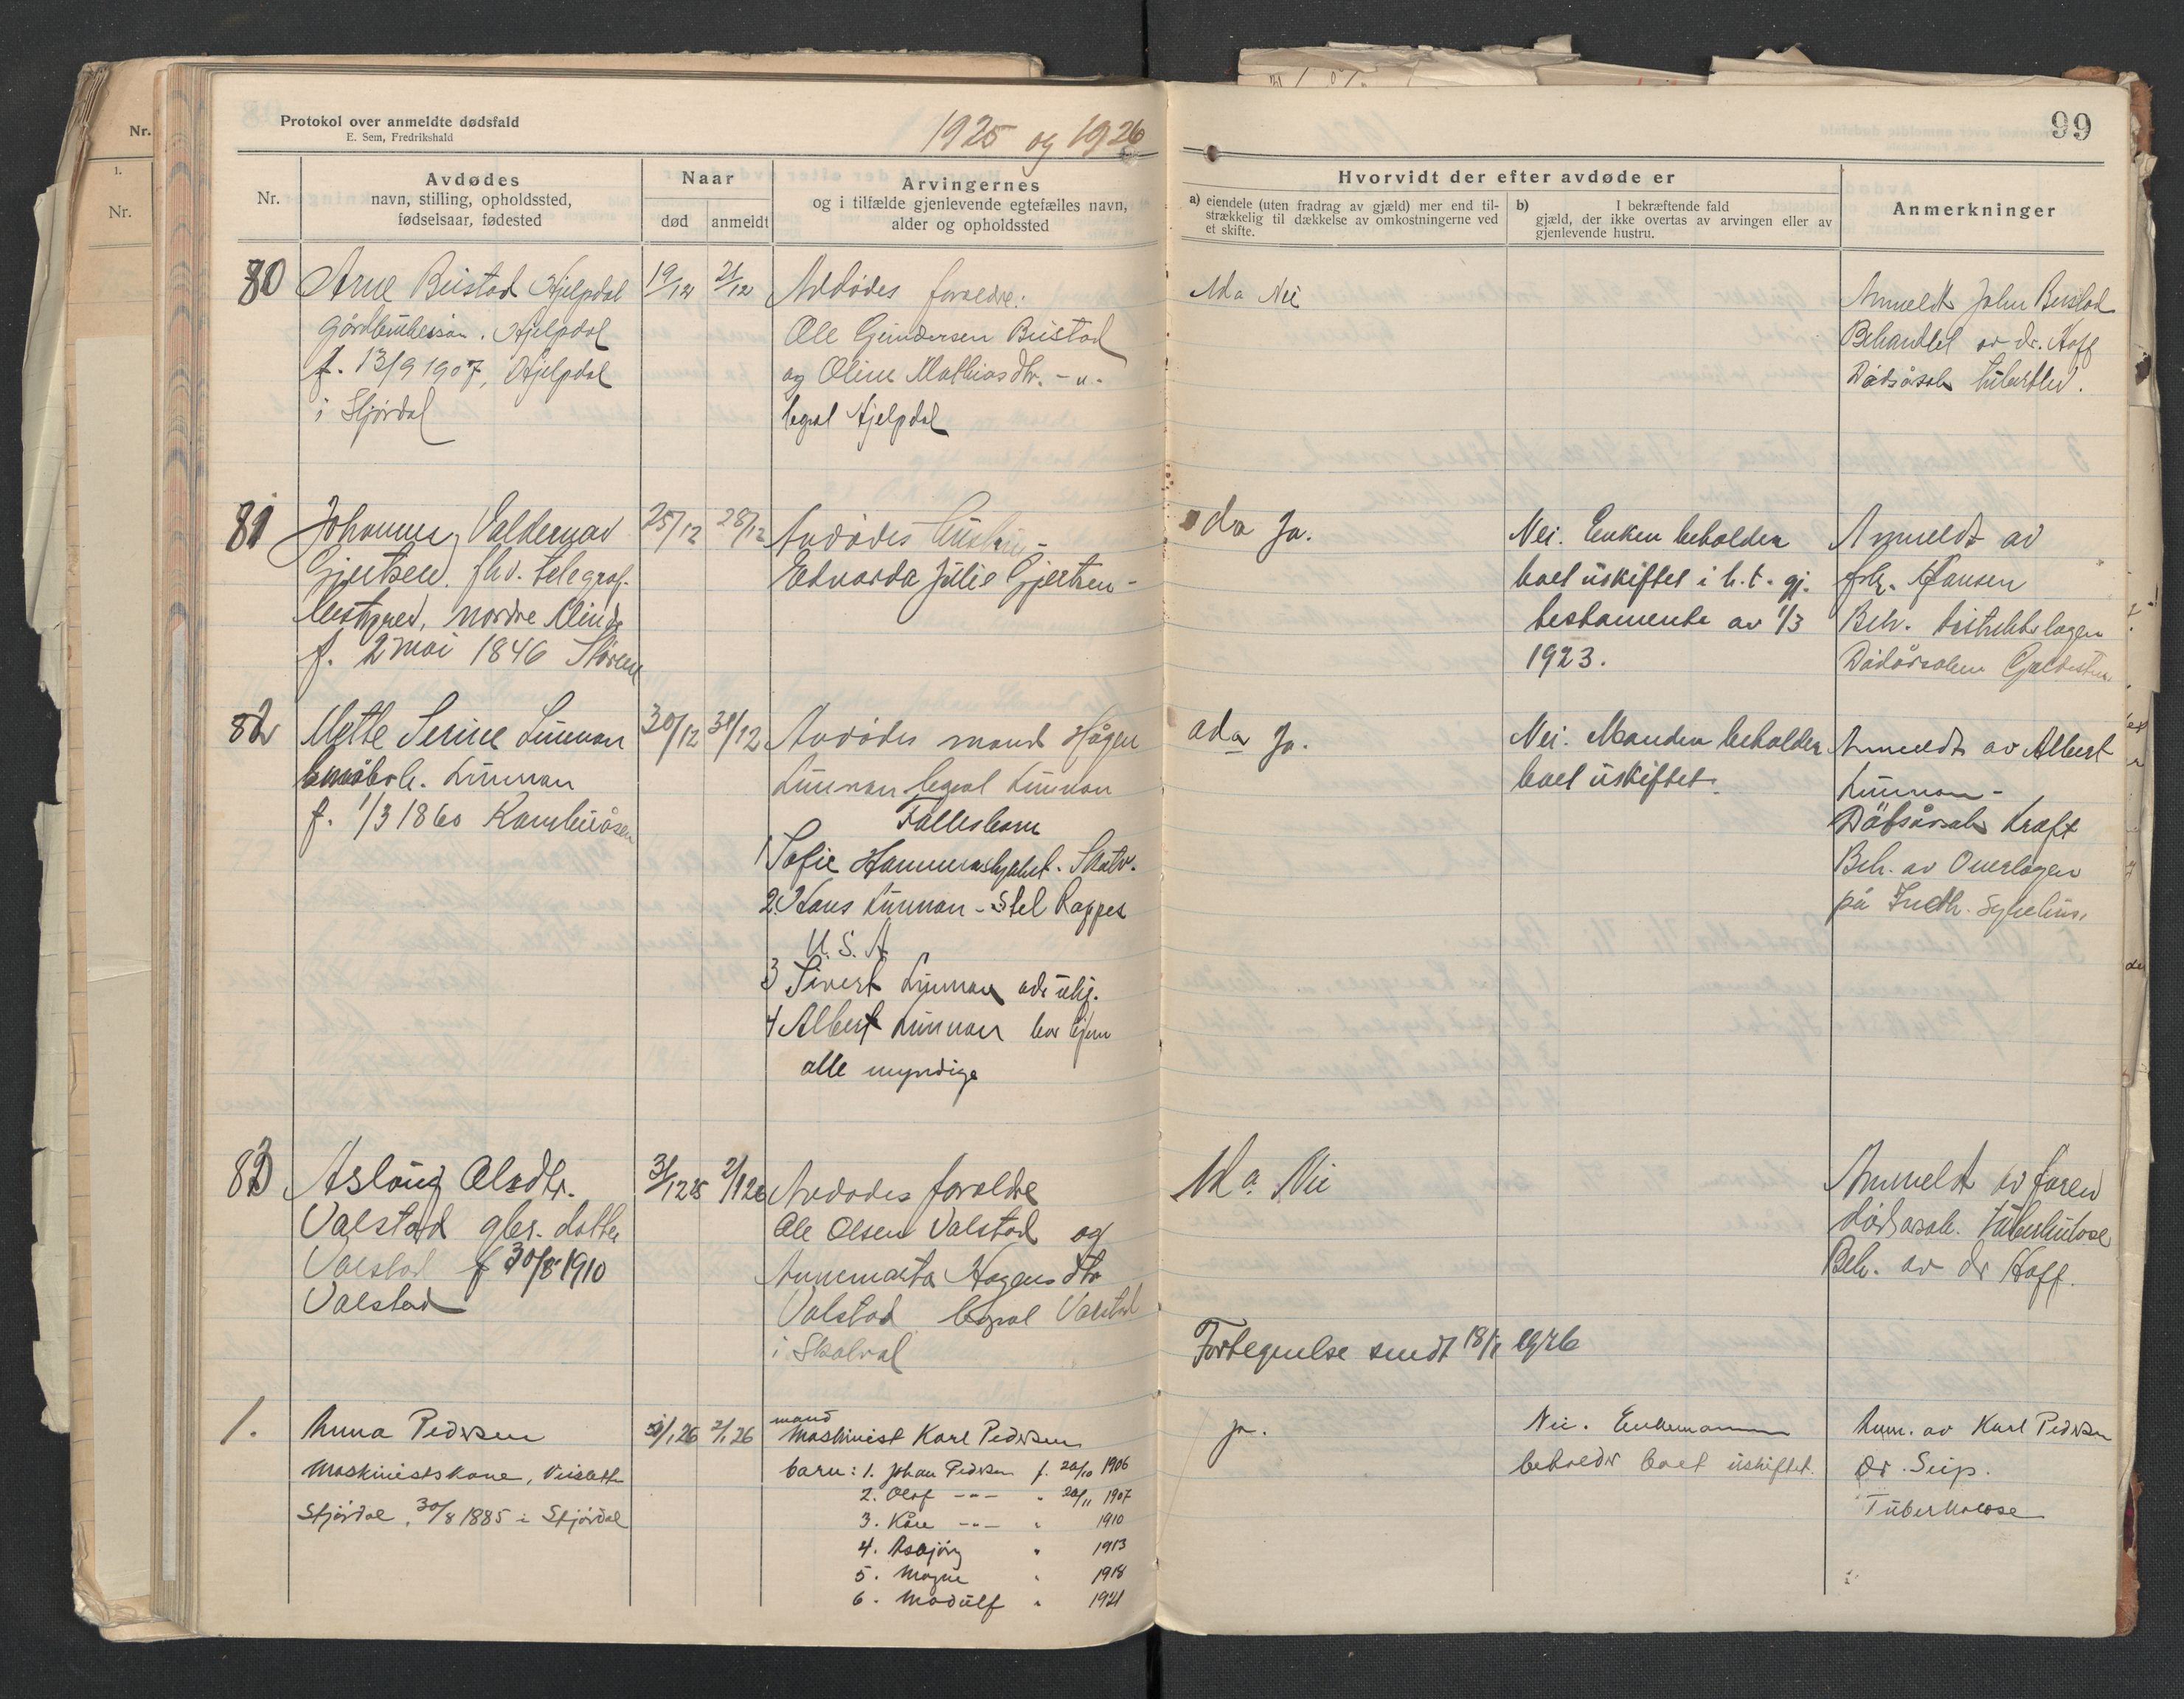 Nr.
1.
Nr.
Protokol over anmeldte dødsfald
E. Sem, Fredrikshald
1925 og 1926
99
Nr.
Avdødes
navn, stilling, opholdssted,
fødselsaar, fødested
Naar
død
anmeldt
Arvingernes
og i tilfælde gjenlevende egtefælles navn,
alder og opholdssted
Hvorvidt der efter avdøde er
a) eiendele (uten fradrag av gjæld) mer end til-
strækkelig til dækkelse av omkostningerne ved
et skifte.
b) I bekræftende fald
gjæld, der ikke overtas av arvingen eller av
gjenlevende hustru.
Anmerkninger
80
Arne Beistad Hjelpdal
. Hjelpdal
f. 13/9 1907, Hjelpdal
i Stjørdal
19/12
21/12
Avdødes foreldre:
Ole Gundersen Beistad
og Oline Mathiasdtr. -"-
begge Hjelpdal
Ad a Nei
Anmeldt John Beistad
Behandlet av dr. Hoff
Dødsårsak
81
Johannes Valdemar
Gjertsen. fhv. telegraf-
bestyrer, nordre
f. 2 mai 1846
25/12
28/12
Avdødes hustru -
Edvarda Julie Gjertsen -
ad a Ja.
Nei. Enken beholder
boet uskiftet i h. t. gj.
testamente av 1/3
1923.
Anmeldt av
frk. Hansen
Beh. distriktslægen
Dødårsaken
82
Mette Serine Linnan
Linnan
f. 1/3 1860
30/12
31/12
Avdødes mand Hågen
Linnan bopal Linnan
Fællesbarn
1 Sofie Hammershjelet. Skatv.
2. Hans Linnan - Stel Rappes
U. S. A
3 Sivert Linnan adr ubj.
4 Albert Linnan bor hjem
alle myndige
ad a Ja.
Nei. Manden beholder
boet uskiftet.
Anmeldt av Albert
Linnan -
Dødsårsak Kraft
Beh. av Overlægen
på Indh. Sykehus.
83
Aslaug Olsdtr.
Valstad gbr. datter
Valstad f 30/8 1910
Valstad
31/12 25
2/1 26
Avdødes foreldre
Ole Olsen Valstad og
Annemarta Hagensdtr
Valstad bopal Valstad
i Skatval
Ad a. Nei
Anmeldt av faren
dødsarsak. tuberkulose
Beh. av dr Hoff.
Fortegnelse sendt 18/1 1926
1.
Anna Pedersen
Maskinistskone,
Stjørdal, 30/8 1885 i Stjørdal
/1 26
2/1 26
mand
Maskinist Karl Pedersen
barn: 1. Johan Pedersen f. 20/10 1906
2. Olaf -"- " 20/11 1907
3. Kåre -"- " 1910
4. Asbjørg " 1913
5. Magne " 1918
6. Modulf " 1921
ja.
Nei. Enkemannen
beholder boet uskiftet.
Anm. av Karl Pedersen
Dr. Seip.
Tuberkulose